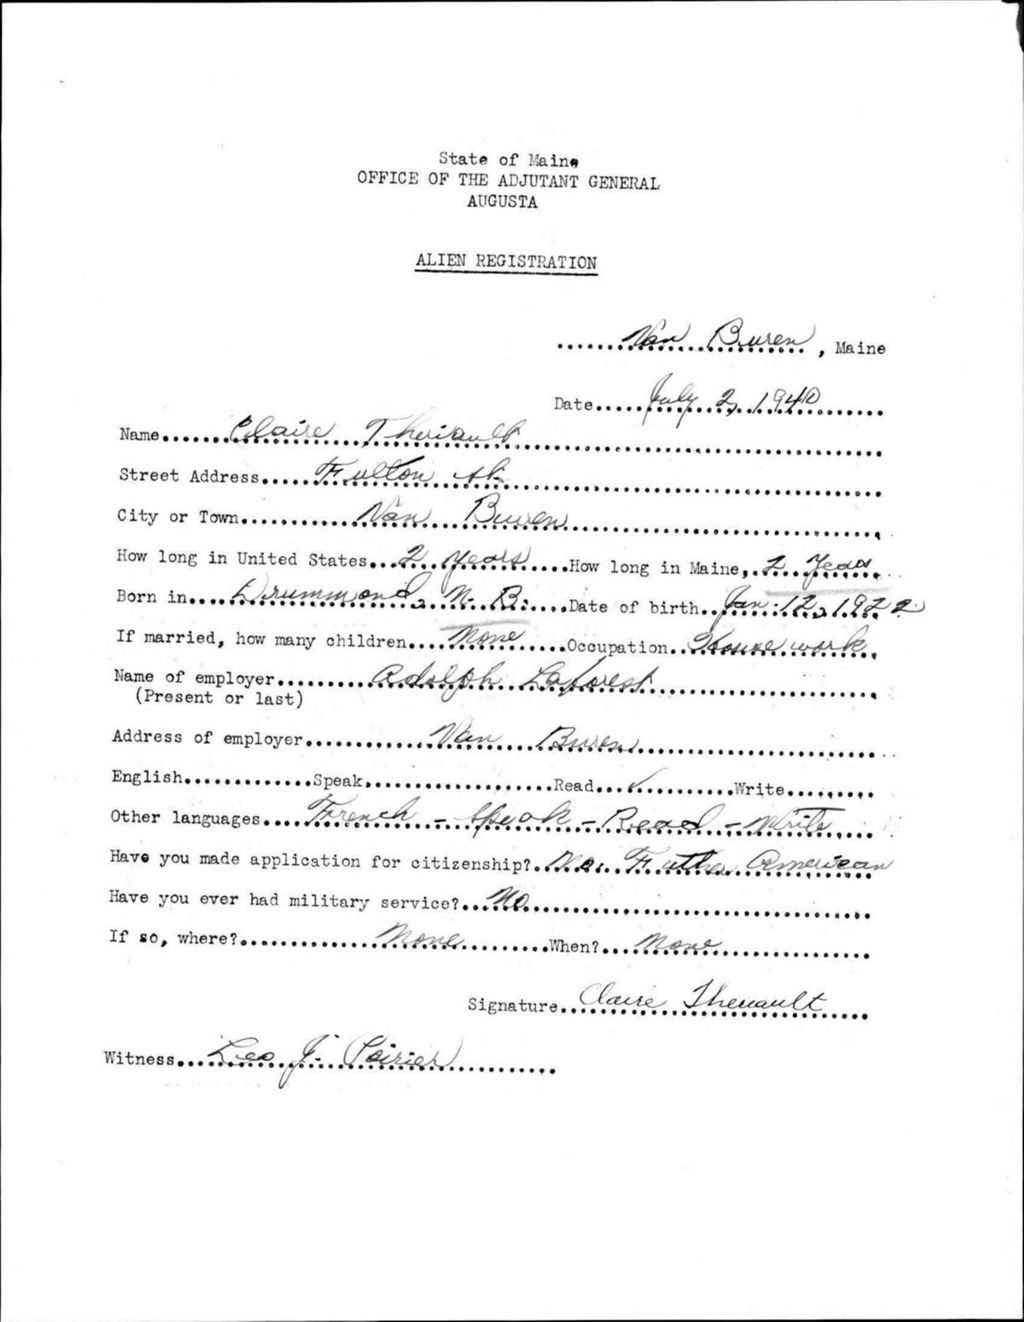 State of Maine
OFFICE OF THE ADJUTANT GENERAL
AUGUSTA
ALIEN REGISTRATION
Van Buren, Maine
Date July 2, 1940
Name Claire Theriault
Street Address Fulton St.
City or Town Van Buren
How long in United States 2 years How long in Maine, 2 Years
Born in Drummond, N. B. Date of birth Jan. 12, 1922
If married, how many children None Occupation House work
Name of employer Adolph Laforest
(Present or last)
Address of employer Van Buren
English Speak Read ✓ Write
Other languages French - Speak - Read - Write
Have you made application for citizenship? No. Father American
Have you ever had military service? No
If so, where? None When? None
Signature Claire Theriault
Witness Leo J. Poirier